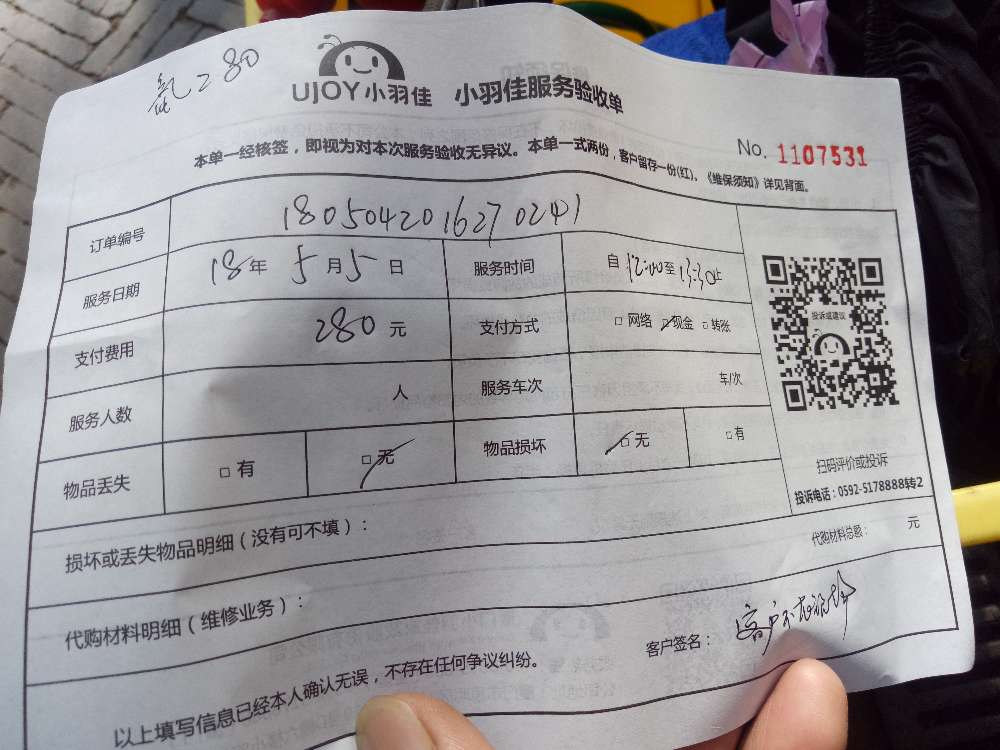 280
UJOY 小羽佳 小羽佳服务验收单
本单一经核签，即视为对本次服务验收无异议。本单一式两份，客户留存一份(红)。《维保须知》详见背面。
No. 1107531
订单编号 1805042016270241
服务日期 18年 5月5日 服务时间 自12:00至13:30止
支付费用 280元 支付方式 □网络 □现金 □转账
服务人数 人 服务车次 车/次
物品丢失 □有 □无 物品损坏 □无 □有
投诉或建议
扫码评价或投诉
投诉电话：0592-5178888转2
损坏或丢失物品明细（没有可不填）：
代购材料明细（维修业务）： 代购材料总额： 元
以上填写信息已经本人确认无误，不存在任何争议纠纷。 客户签名： 客户不在现场